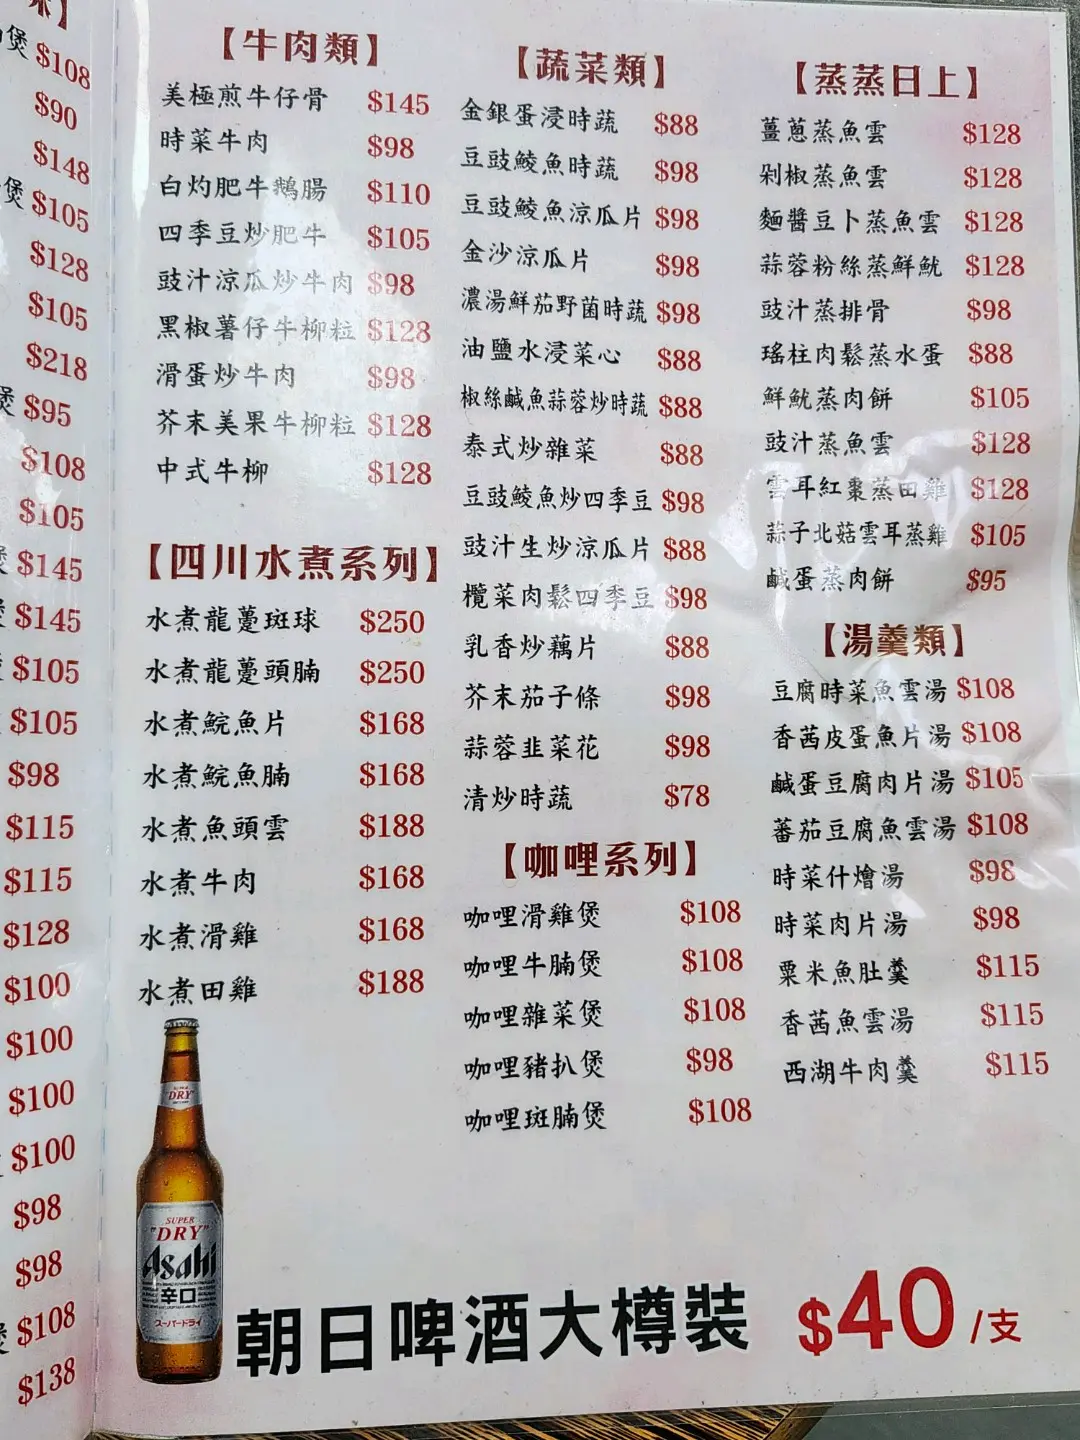 味】
煲 $108
$90
$148
煲 $105
$128
$105
$218
煲 $95
$108
$105
煲 $145
$145
$105
$105
$98
$115
$115
$128
$100
$100
$100
$100
$98
$98
煲 $108
$138
【牛肉類】
美極煎牛仔骨 $145
時菜牛肉 $98
白灼肥牛鵝腸 $110
四季豆炒肥牛 $105
豉汁涼瓜炒牛肉 $98
黑椒薯仔牛柳粒 $128
滑蛋炒牛肉 $98
芥末美果牛柳粒 $128
中式牛柳 $128
【四川水煮系列】
水煮龍躉斑球 $250
水煮龍躉頭腩 $250
水煮鯇魚片 $168
水煮鯇魚腩 $168
水煮魚頭雲 $188
水煮牛肉 $168
水煮滑雞 $168
水煮田雞 $188
【蔬菜類】
金銀蛋浸時蔬 $88
豆豉鯪魚時蔬 $98
豆豉鯪魚涼瓜片 $98
金沙涼瓜片 $98
濃湯鮮茄野菌時蔬 $98
油鹽水浸菜心 $88
椒絲鹹魚蒜蓉炒時蔬 $88
泰式炒雜菜 $88
豆豉鯪魚炒四季豆 $98
豉汁生炒涼瓜片 $88
欖菜肉鬆四季豆 $98
乳香炒藕片 $88
芥末茄子條 $98
蒜蓉韭菜花 $98
清炒時蔬 $78
【咖哩系列】
咖哩滑雞煲 $108
咖哩牛腩煲 $108
咖哩雜菜煲 $108
咖哩豬扒煲 $98
咖哩斑腩煲 $108
【蒸蒸日上】
薑蔥蒸魚雲 $128
剁椒蒸魚雲 $128
麵醬豆卜蒸魚雲 $128
蒜蓉粉絲蒸鮮魷 $128
豉汁蒸排骨 $98
瑤柱肉鬆蒸水蛋 $88
鮮魷蒸肉餅 $105
豉汁蒸魚雲 $128
雲耳紅棗蒸田雞 $128
蒜子北菇雲耳蒸雞 $105
鹹蛋蒸肉餅 $95
【湯羹類】
豆腐時菜魚雲湯 $108
香茜皮蛋魚片湯 $108
鹹蛋豆腐肉片湯 $105
蕃茄豆腐魚雲湯 $108
時菜什燴湯 $98
時菜肉片湯 $98
粟米魚肚羹 $115
香茜魚雲湯 $115
西湖牛肉羹 $115
"DRY"
SUPER
"DRY"
Asahi
辛口
スーパードライ
朝日啤酒大樽裝 $40/支